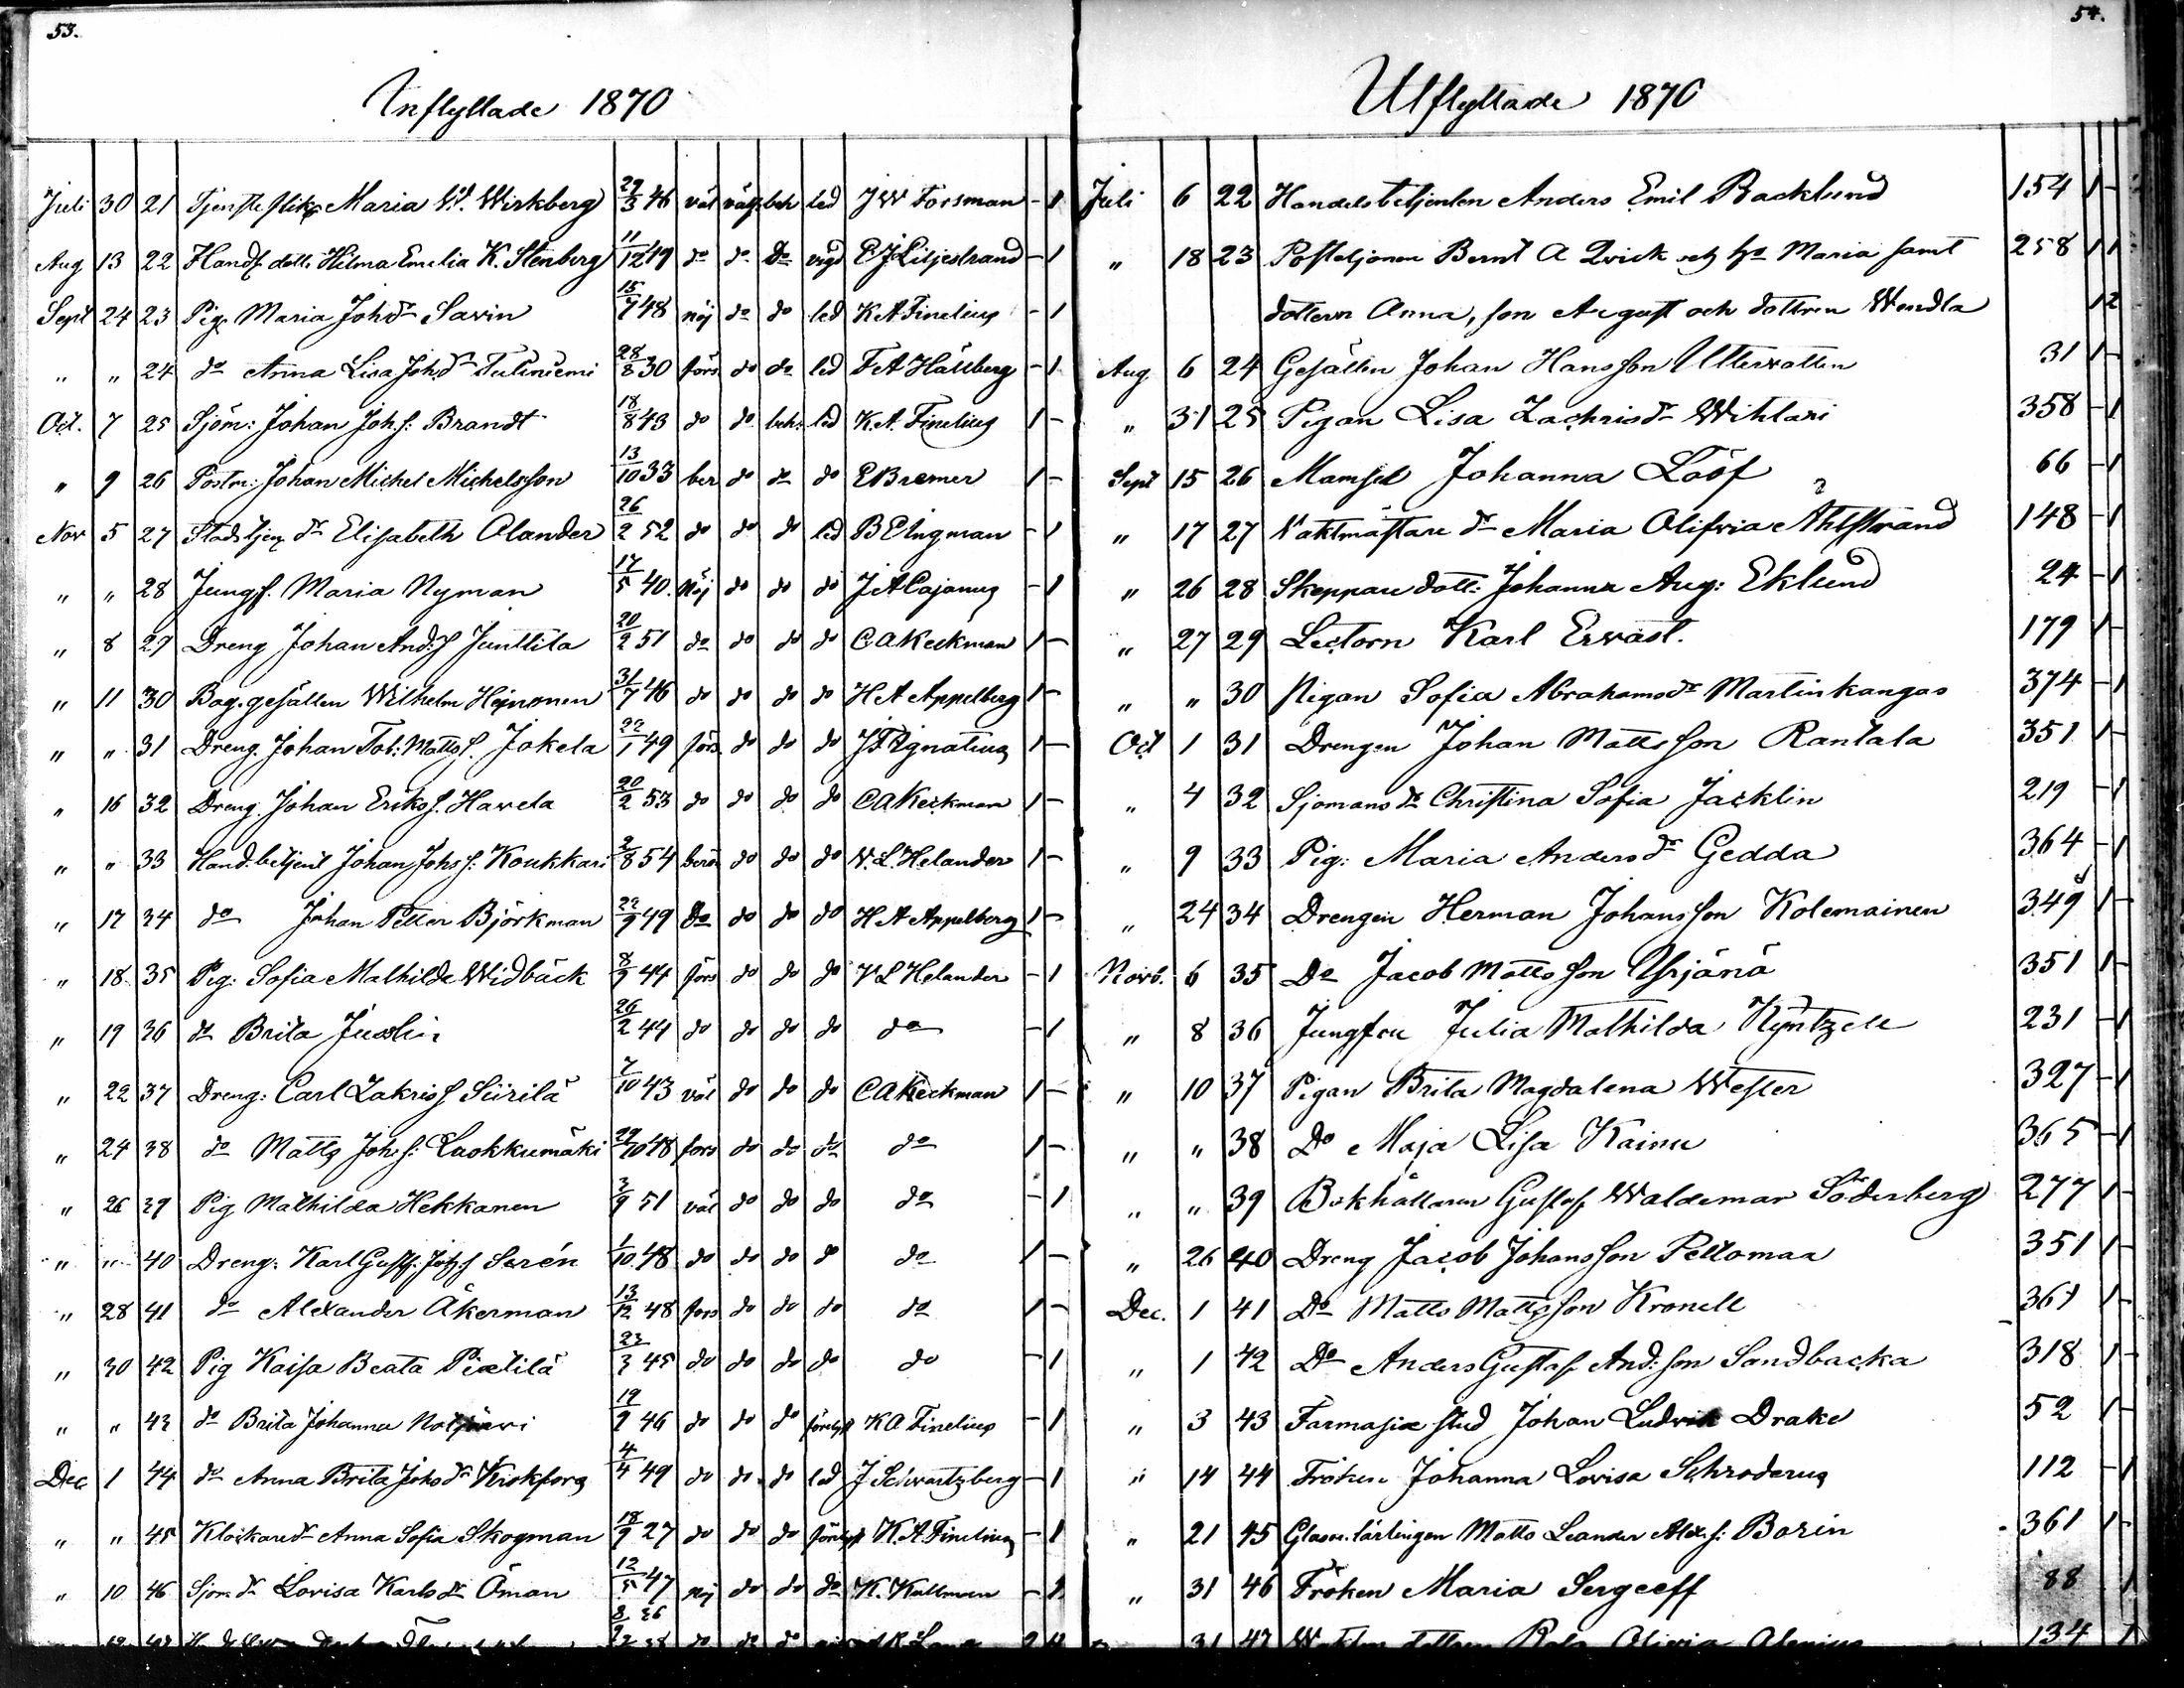 53.
Inflyttade 1870
Juli 30 21 Tjensteflick Maria Wirkberg 29/3 46 väl vacc beh led J W Forsman - 1
Aug 13 22 Handl dott: Hilma Emelia K. Stenberg 11/12 49 do do Do vigd E J Liljestrand - 1
Sept 24 23 Pig. Maria Johdr Savin 15/9 48 nöj do do led K A Finelius - 1
" " 24 do Anna Lisa Joh.dr Tuliniemi 28/8 30 förs do do led F A Hällberg - 1
Oct. 7 25 Sjöm: Johan Joh.s: Brandt 18/8 43 do do beh: led K. A. Finelius 1 -
" 9 26 Postm: Johan Michel Michelsson 13/10 33 ber do do do E Bremer 1 -
Nov 5 27 Stadstjen dr Elisabeth Olander 26/2 52 do do do led B E Ingman - 1
" " 28 Jungf. Maria Nyman 17/5 40. Nöj do do do J A Cajanus - 1
" 8 29 Dreng Johan And.s Junttila 20/2 51 do do do do C A Keckman 1 -
" 11 30 Bag.gesällen Wilhelm Heinonen 31/7 46 do do do do H A Appelberg 1 -
" " 31 Dreng. Johan Tob: Matts s. Jokela 22/1 49 förs do do do J F Ignatius 1 -
" 16 32 Dreng. Johan Eriks s. Havela 20/2 53 do do do do C A Keckman 1 -
" " 33 Hand.betjent Johan Johs s: Koukkari 2/8 54 berö do do do V. L. Helander 1 -
" 17 34 do Johan Petter Björkman 22/9 49 Do do do do H A Appelberg 1 -
" 18 35 Pig: Sofia Mathilda Widbäck 8/9 44 förs do do do V L Helander - 1
" 19 36 do Brita Juslin 26/2 44 do do do do do - 1
" 22 37 Dreng: Carl Zakris s Siirilä 7/10 43 väl do do do C A Keckman 1 -
" 24 38 do Matts Joh.s: Laokkumäki 29/10 48 förs do do do do 1 -
" 26 39 Pig Mathilda Hekkanen 3/9 51 väl do do do do - 1
" " 40 Dreng: Karl Gust. Johs s Serén 1/10 48 do do do do do 1 -
" 28 41 do Alexander Åkerman 13/12 48 fors do do do do 1 -
" 30 42 Pig Kaisa Beata Pietilä 23/3 45 do do do do do - 1
" " 43 do Brita Johanna 19/9 46 do do do K A Finelius - 1
Dec 1 44 do Anna Brita Johs dr Krokfors 4/4 49 do do do led J Schwartzberg - 1
" " 45 Klockare dr Anna Sofia Skogman 18/9 27 do do do K. A. Finelius - 1
" 10 46 Sjom. dr Lovisa Karls dr Öman 12/5 47 nöj do do do K. Kullman - 1
54.
Utflyttade 1870
Juli 6 22 Handelsbetjenten Anders Emil Backlund 154 1 -
" 18 23 Posteljonen Bernt A Qvick och ho Maria samt 258 1 1
dottern Anna, son August och dottren Wendla 1 2
Aug 6 24 Gesällen Johan Hansson Uttervatten 31 1 -
" 31 25 Pigan Lisa Zachrisdr Wihlari 358 - 1
Sept 15 26 Mamsel Johanna Lööf 66 - 1
" 17 27 Vaktmästare dr Maria Olifvia Ahlstrand 148 - 1
" 26 28 Skeppare dott: Johanna Aug: Eklund 24 - 1
" 27 29 Lectorn Karl Ervast. 179 1 -
" " 30 Pigan Sofia Abrahamsdr Martinkangas 374 - 1
Oct 1 31 Drengen Johan Mattsson Rantala 351 1 -
" 4 32 Sjömans dr Christina Sofia Jacklin 219 - 1
" 9 33 Pig: Maria Andersdr Gedda 364 - 1
" 24 34 Drengen Herman Johansson Kolemainen 349 1 -
Novb. 6 35 Do Jacob Mattsson Yrjänä 351 1 -
" 8 36 Jungfru Julia Mathilda Kyntzell 231 - 1
" 10 37 Pigan Brita Magdalena Wester 327 - 1
" " 38 Do Maja Lisa Kainu 365 - 1
" " 39 Bokhållaren Gustaf Waldemar Söderberg 277 1 -
" 26 40 Dreng Jacob Johansson Peltomaa 351 1 -
Dec. 1 41 Do Matts Mattsson Kronell 361 1 -
" 1 42 Do Anders Gustaf And:son Sandbacka 318 1 -
" 3 43 Farmasie stud Johan Ludvik Drake 52 1 -
" 14 44 Fröken Johanna Lovisa Schroderus 112 - 1
" 21 45 Glasm.lärlingen Matts Leander Alex.s: Borin 361 1 -
" 31 46 Fröken Maria Sergeeff 88 - 1
31 47 Olivia Alenius 134 1